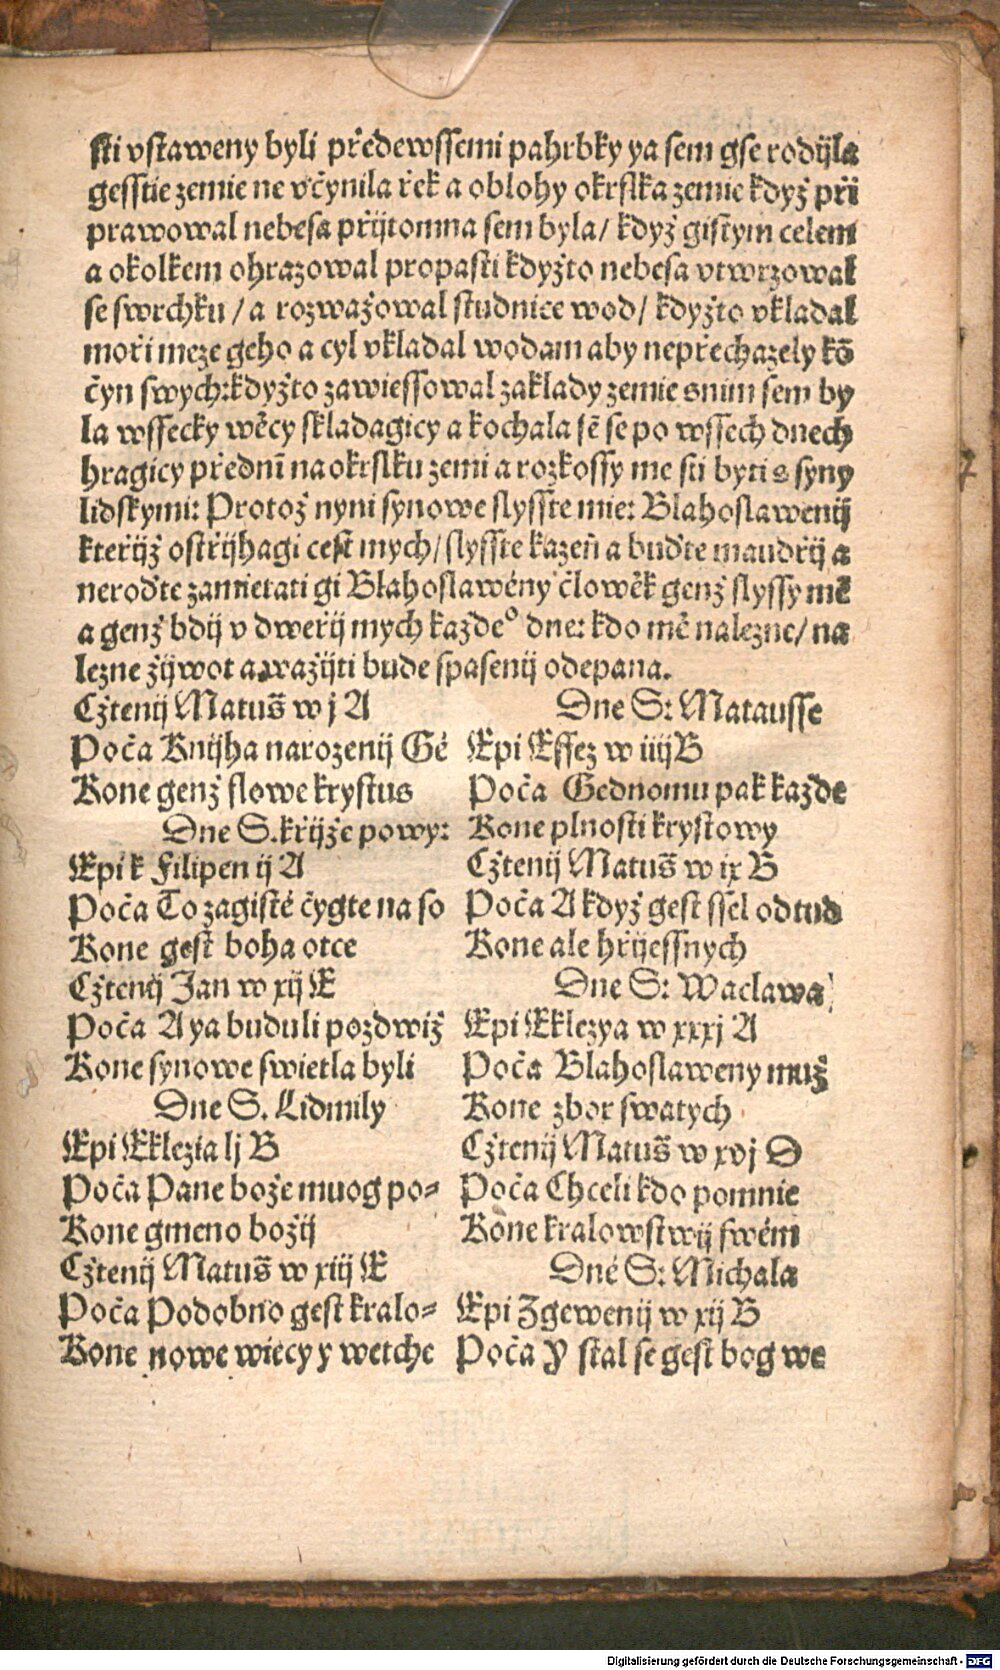 sti vstaweny byli předewssemi pahrbky ya sem gse rodijla
gesstie zemie ne včynila řek a oblohy okrslka zemie když při
prawowal nebesa přijtomna sem byla/ když gistym celem
a okolkem ohrazowal propasti kdyžto nebesa vtwrzowal
se swrchku / a rozwažowal studnice wod/ kdyžto vkladal
moři meze geho a cyl vkladal wodam aby nepřechazely kō
čyn swych:kdyžto zawiessowal zaklady zemie snim sem by
la wssecky wěcy skladagicy a kochala sē se po wssech dnech
hragicy přednī na okrslku zemi a rozkossy me sti byti s syny
lidskymi: Protož nyni synowe slysste mie: Blahoslawenij
kteřijž ostřijhagi cest mych/ slysste kazeň a buďte maudřij a
neroďte zamietati gi Blahoslawény člowěk genž slyssy mě
a genž bdij v dweřij mych každeº dne: kdo mě nalezne/ na
lezne žijwot a wažijti bude spasenij odepana.
Cžtenij Matuš w j A
Poča Knijha narozenij Gé
Kone genž slowe krystus
Dne S.křijže powy:
Epi k Filipen ij A
Poča To zagisté čygte na so
Kone gest boha otce
Cžtenij Jan w xij E
Poča A ya buduli pozdwiž
Kone synowe swietla byli
Dne S. Lidmily
Epi Eklezia lj B
Poča Pane bože muog po=
Kone gmeno božij
Cžtenij Matuš w xiij E
Poča Podobno gest kralo=
Kone nowe wiecy y wetche
Dne S: Matausse
Epi Effez w iiij B
Poča Gednomu pak každe
Kone plnosti krystowy
Cžtenij Matuš w ix B
Poča A když gest ssel odtud
Kone ale hřijessnych
Dne S: Waclawa
Epi Eklezya w xxxj A
Poča Blahoslaweny muž
Kone zbor swatych
Cžtenij Matuš w xvj D
Poča Chceli kdo pomnie
Kone kralowstwij swém
Dné S: Michala
Epi Zgewenij w xij B
Poča Y stal se gest bog we
Digitalisierung gefördert durch die Deutsche Forschungsgemeinschaft - DFG